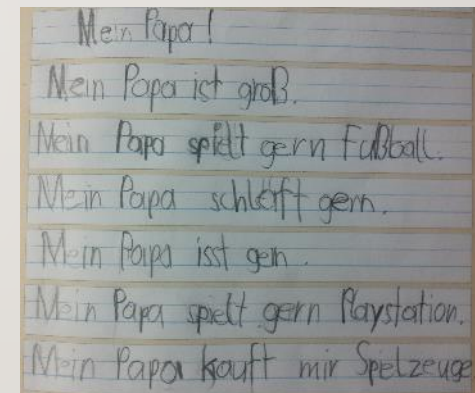 Mein Papa!
Mein Papa ist groß.
Mein Papa spielt gern Fußball.
Mein Papa schläft gern.
Mein Papa isst gen.
Mein Papa spielt gern Playstation.
Mein Papa kauft mir Spielzeuge